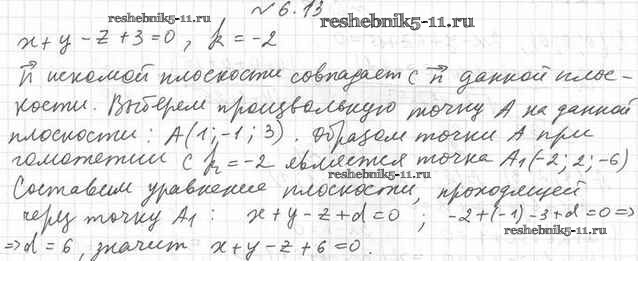 №6.13
reshebnik5-11.ru
reshebnik5-11.ru
x+y-z+3=0, k=-2
n искомой плоскости совпадает с n данной плос-
кости. Выберем произвольную точку A на данной
плоскости: A(1;-1;3). Образом точки A при
гомотетии с k=-2 является точка A₁(-2;2;-6)
reshebnik5-11.ru
Составим уравнение плоскости, проходящей
через точку A₁: x+y-z+d=0; -2+(-1)-3+d=0=>
reshebnik5-11.ru
=>d=6, значит x+y-z+6=0.